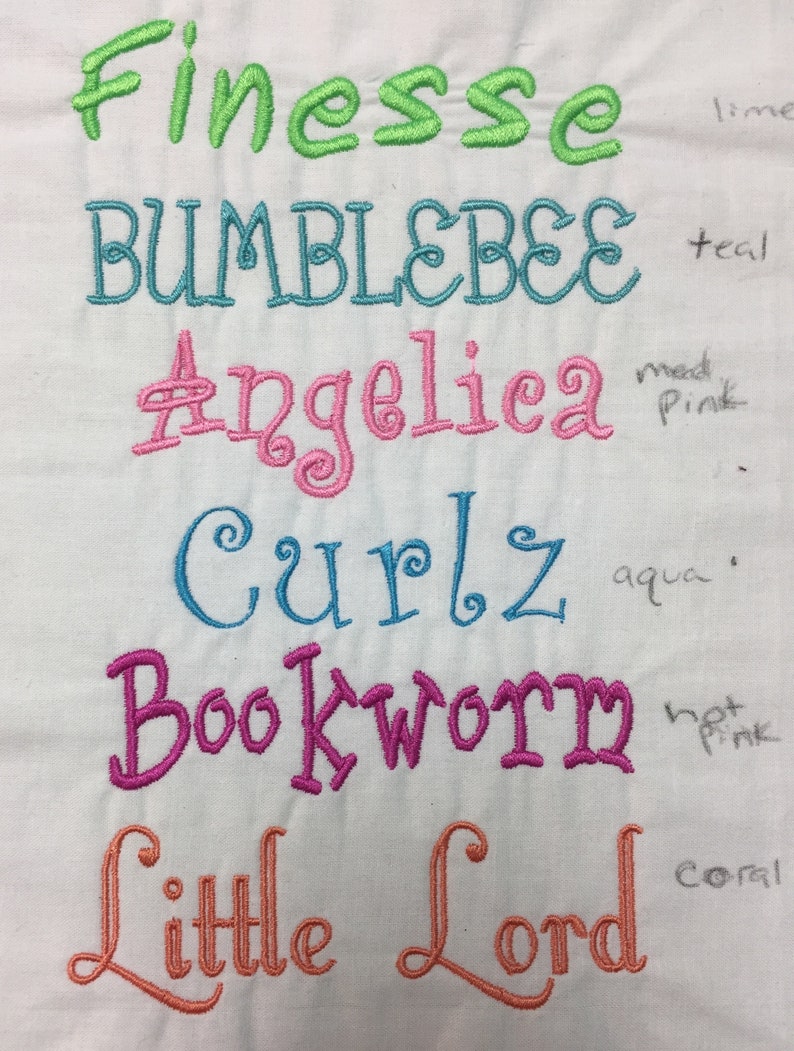 Finesse lime
BUMBLEBEE teal
Angelica med. pink
Curlz aqua
Bookworm hot pink
Little Lord coral